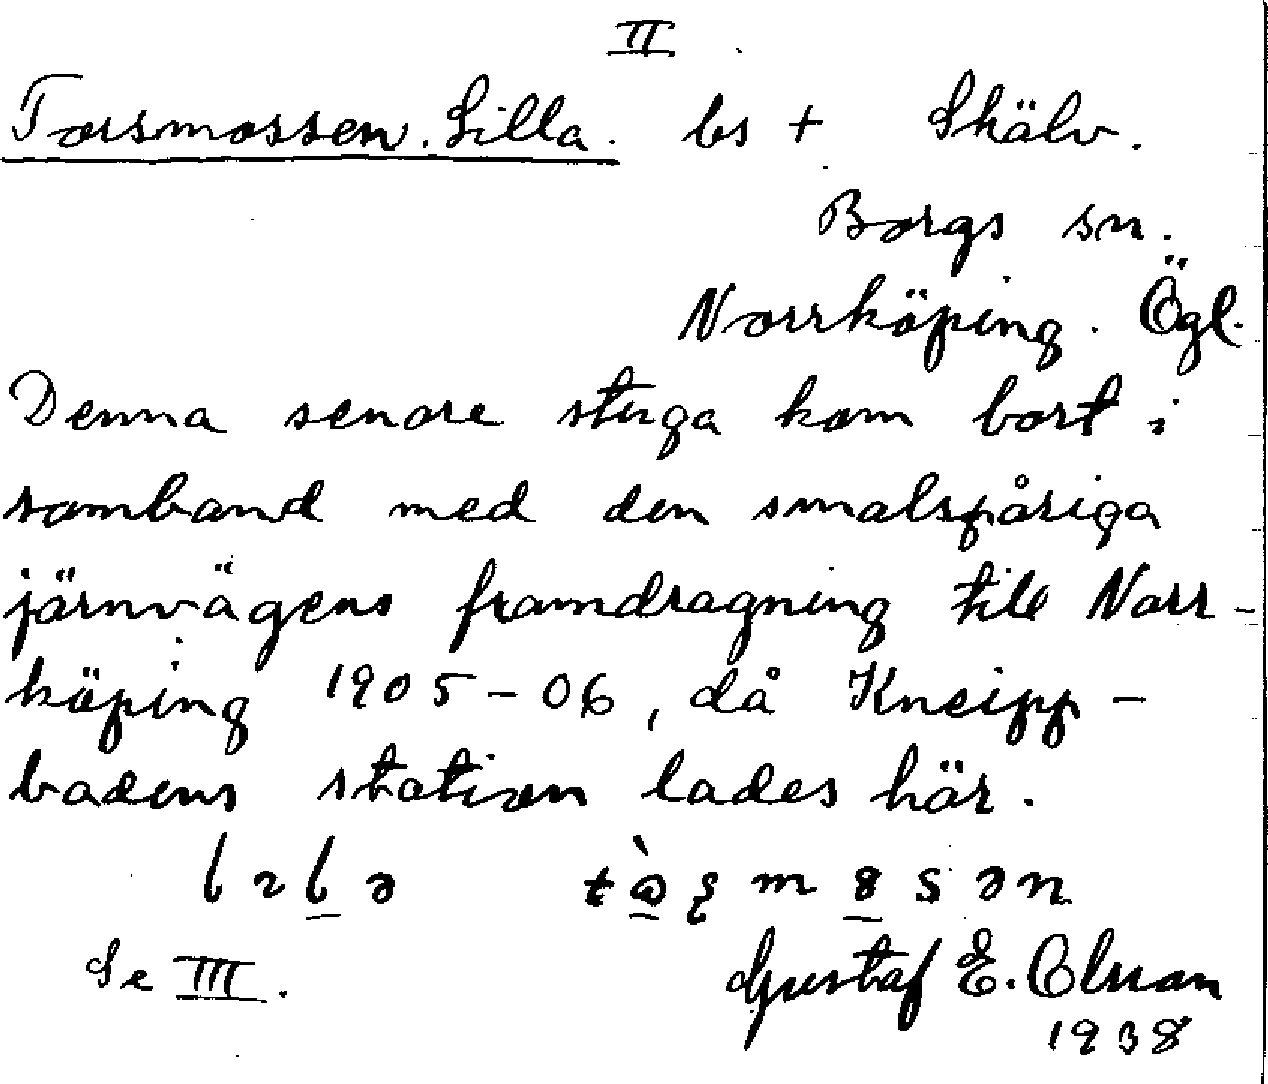 II
Torsmossen. Lilla. bs + Skälv.
Borgs sn.
Norrköping. Ögl.
Denna senare stuga kom bort i
samband med den smalspåriga
järnvägens framdragning till Norr-
köping 1905-06, då Kneipp-
badens station lades här.
Se III. Gustaf E. Olsson
1938